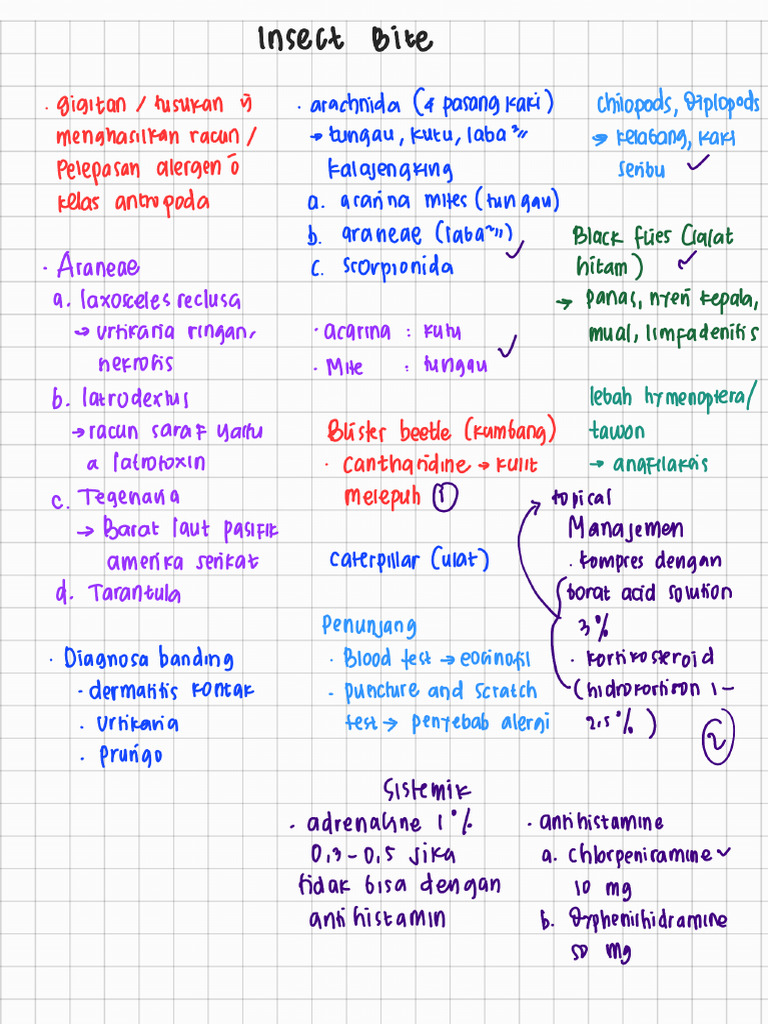 Insect Bite
· gigitan / tusukan yg
menghasilkan racun /
Pelepasan alergen o
kelas antropoda
· Araneae
a. laxosceles reclusa
→ urtikaria ringan,
nekrosis
b. latrodextus
→ racun saraf yaitu
a latrotoxin
c. Tegenaria
→ Barat laut pasifik
amerika serikat
d. Tarantula
· Diagnosa banding
- dermatitis kontak
· urtikaria
· prurigo
· arachnida (4 pasang kaki)
→ tungau, kutu, laba"
kalajengking
a. acarina mites (tungau)
b. araneae (laba~")
c. scorpionida
· acarina : kutu
· Mite : tungau
Blister beetle (kumbang)
· cantharidine → kulit
melepuh ①
caterpillar (ulat)
Penunjang
· Blood test → eosinofil
- puncture and scratch
test → penyebab alergi
chilopods, diplopods
→ kelabang, kaki
seribu
Black flies (lalat
hitam)
→ panas, nyeri kepala,
mual, limfadenitis
lebah hymenoptera/
tawon
→ anafilaksis
topical
Manajemen
· kompres dengan
borat acid solution
3%
· kortikosteroid
(hidrokortison 1-
2,5%)
②
Sistemik
· adrenaline 1%
0,3-0,5 jika
tidak bisa dengan
antihistamin
· antihistamine
a. chlorpeniramine
10 mg
b. dyphenilhidramine
50 mg